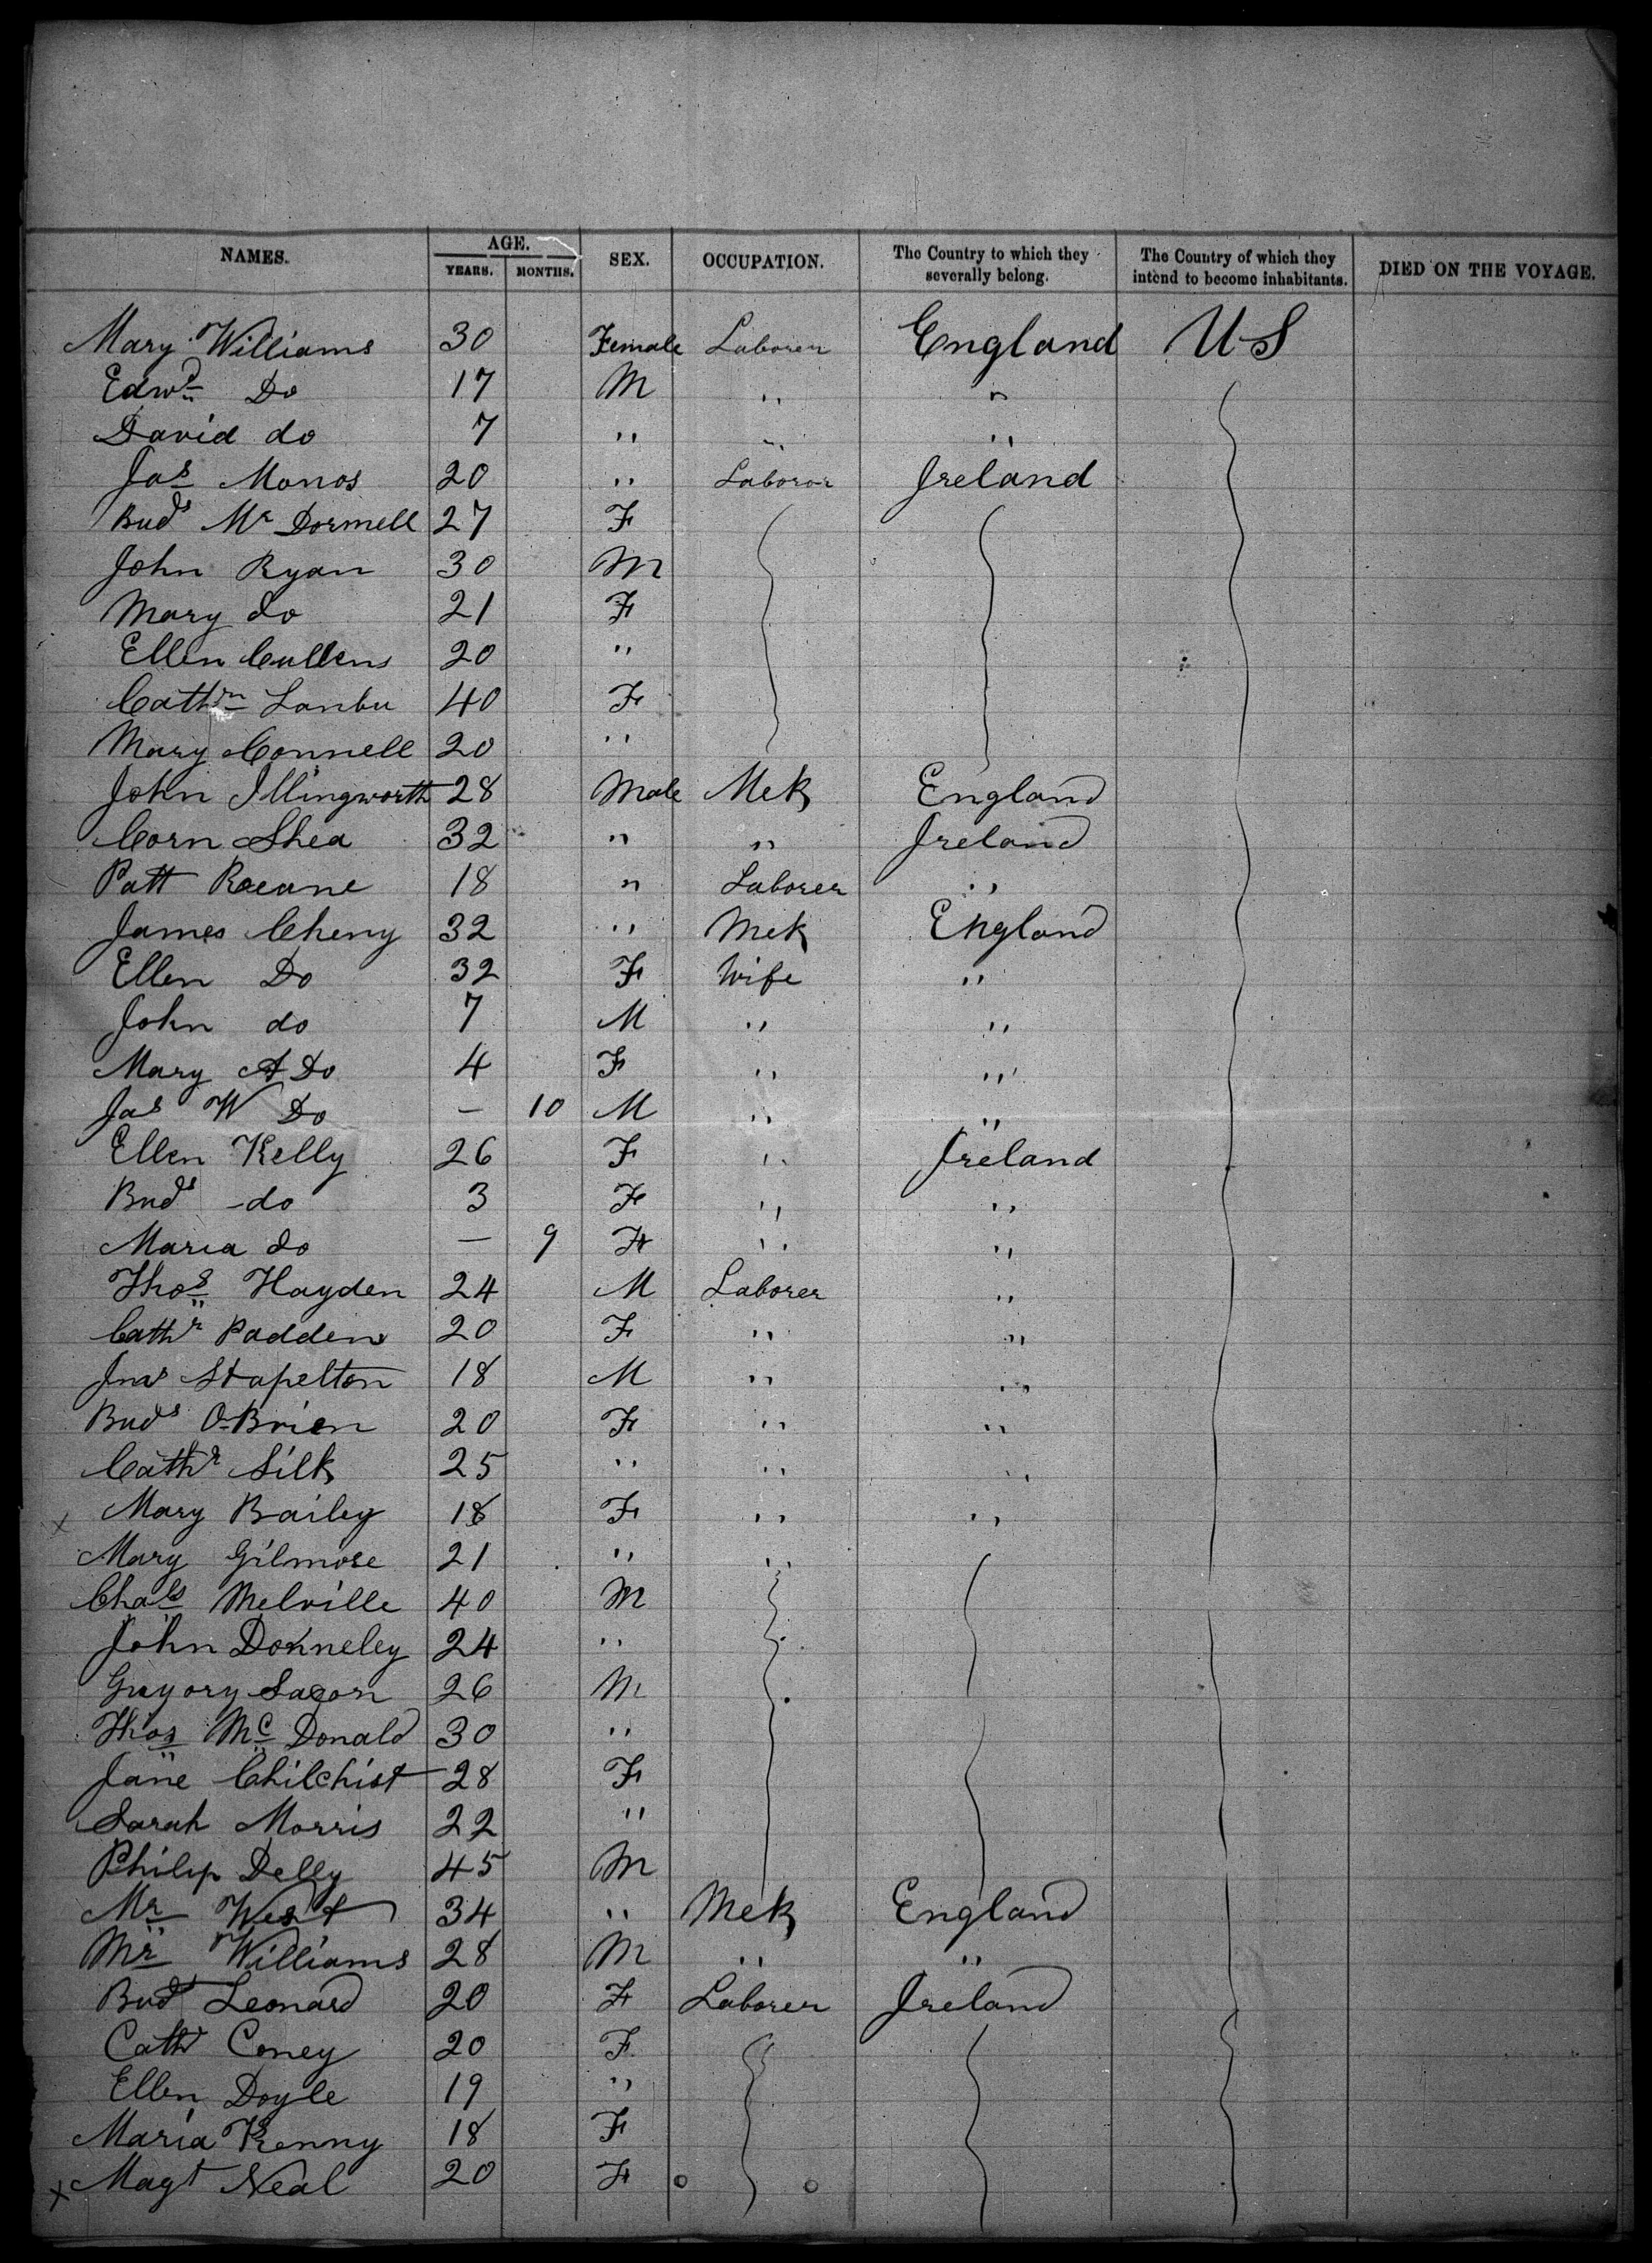 NAMES. AGE. SEX. OCCUPATION. The Country to which they severally belong. The Country of which they intend to become inhabitants. DIED ON THE VOYAGE.
YEARS. MONTHS.
Mary Williams 30 Female Laborer England U S
Edwd Do 17 M " "
David do 7 " " "
Jas Monos 20 " Laboror Ireland
Buds Mc Dormell 27 F
John Ryan 30 M
Mary do 21 F
Ellen Cullens 20 "
Cathrn Lanbu 40 F
Mary Connell 20 "
John Illingworth 28 Male Mek England
Corn Shea 32 " " Ireland
Patt Roeane 18 " Laborer "
James Cheny 32 " Mek England
Ellen Do 32 F Wife "
John do 7 M " "
Mary A Do 4 F " "
Jas W Do — 10 M " "
Ellen Kelly 26 F " Ireland
Buds do 3 F " "
Maria do — 9 F " "
Thos Hayden 24 M Laborer "
Cathr Padden 20 F " "
Jnas Stapelton 18 M " "
Buds O-Brien 20 F " "
Cathr Silk 25 " " "
x Mary Bailey 18 F " "
Mary Gilmore 21 " "
Chals Melville 40 M
John Donneley 24 "
Gregory 26 M
Thos Mc Donald 30 "
Jane Chilchist 28 F
Sarah Morris 22 "
Philip Delly 45 M
Mr West 34 " Mek England
Mr Williams 28 M " "
Buds Leonard 20 F Laborer Ireland
Cathr Coney 20 F
Ellen Doyle 19 "
Maria Kenny 18 F
x Magt Neal 20 F